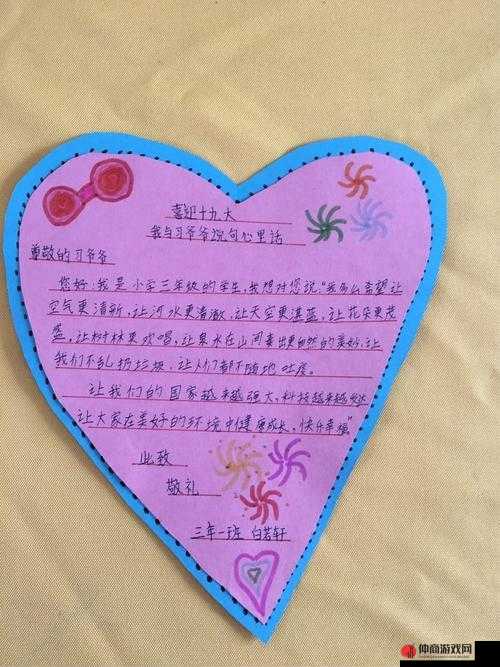 喜迎十九大
我与习爷爷说句心里话
尊敬的习爷爷
您好：我是小学三年级的学生，我想对您说："我多么希望让
空气更清新，让河水更清澈，让天空更湛蓝，让花朵更茂
盛，让树林更欢唱，让泉水在山间奏出更自然的美妙，让
我们不乱扔垃圾，让人们都不随地吐痰。
让我们的国家越来越强大，科技越来越发达
让大家在美好的环境中健康成长，快乐幸福"
此致
敬礼
三年一班 白若轩
仲商游戏网